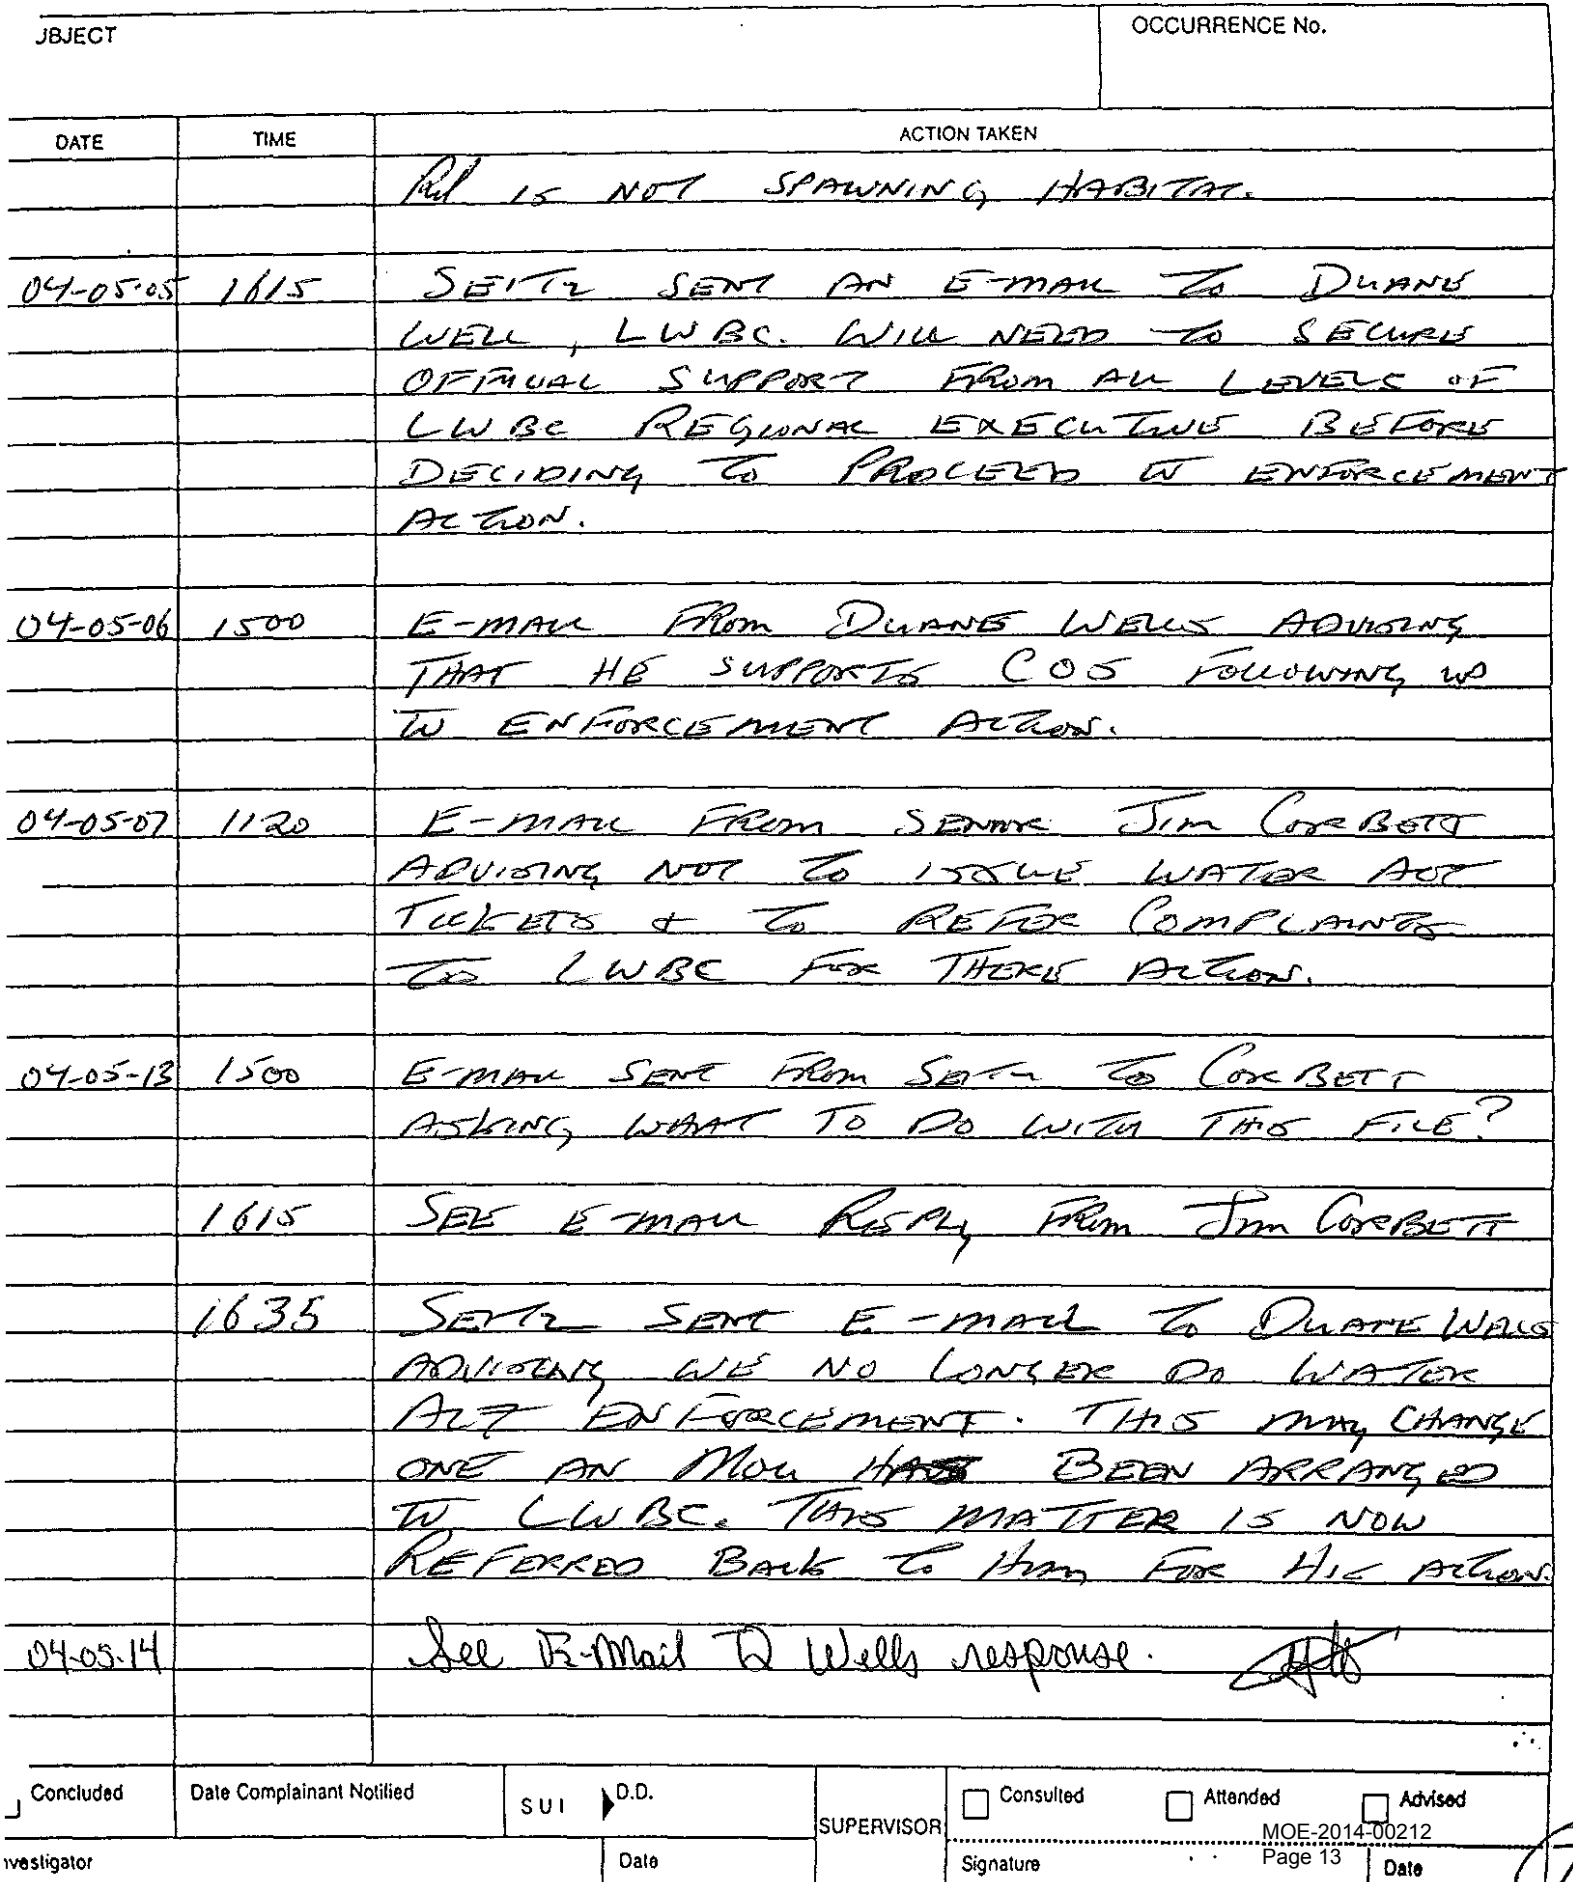 JBJECT
OCCURRENCE No.
DATE TIME ACTION TAKEN
IS NOT SPAWNING HABITAT.
04-05-05 1615 SEITZ SENT AN E-MAIL TO DUANE
WELL, LWBC. WILL NEED TO SECURE
OFFICIAL SUPPORT FROM ALL LEVELS OF
LWBC REGIONAL EXECUTIVE BEFORE
DECIDING TO PROCEED W ENFORCEMENT
ACTION.
04-05-06 1500 E-MAIL FROM DUANE WELLS ADVISING
THAT HE SUPPORTS COS FOLLOWING UP
W ENFORCEMENT ACTION.
04-05-07 1120 E-MAIL FROM SENIOR JIM CORBETT
ADVISING NOT TO ISSUE WATER ACT
TICKETS & TO REFER COMPLAINTS
TO LWBC FOR THERE ACTION.
04-05-13 1500 E-MAIL SENT FROM SEITZ TO CORBETT
ASKING WHAT TO DO WITH THIS FILE?
1615 SEE E-MAIL REPLY FROM JIM CORBETT
1635 SEITZ SENT E-MAIL TO DUANE WELLS
ADVISING WE NO LONGER DO WATER
ACT ENFORCEMENT. THIS MAY CHANGE
ONE AN MOU HAS BEEN ARRANGED
W LWBC. THIS MATTER IS NOW
REFERRED BACK TO HIM FOR HIS ACTION.
04-05-14 See E-Mail D Wells response.
Concluded Date Complainant Notified SUI D.D. SUPERVISOR Consulted Attended Advised
MOE-2014-00212
nvestigator Date Signature Page 13 Date